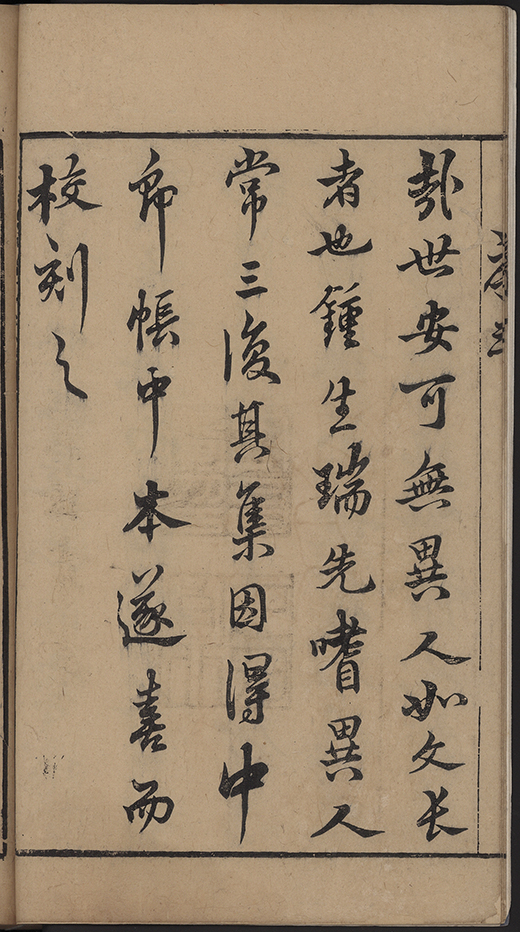 哉世安可無異人如文長
者也鍾生瑞先嗜異人
常三復其集因得中
郎帳中本遂喜而
校刻之